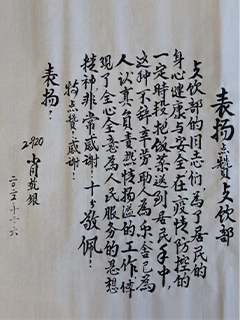 表扬点赞歺饮部
歺饮部的同志们,为了居民的
身心健康与安全在疫情防控的
一定時段把饭菜送到居民手中,
这种不辞辛劳助人为乐舍己为
人认真负责热情扬溢的工作,体
现了全心全意为人民服务的思想
精神非常感谢!十分敬佩!
特点赞!感谢!
表扬!
2920 肖